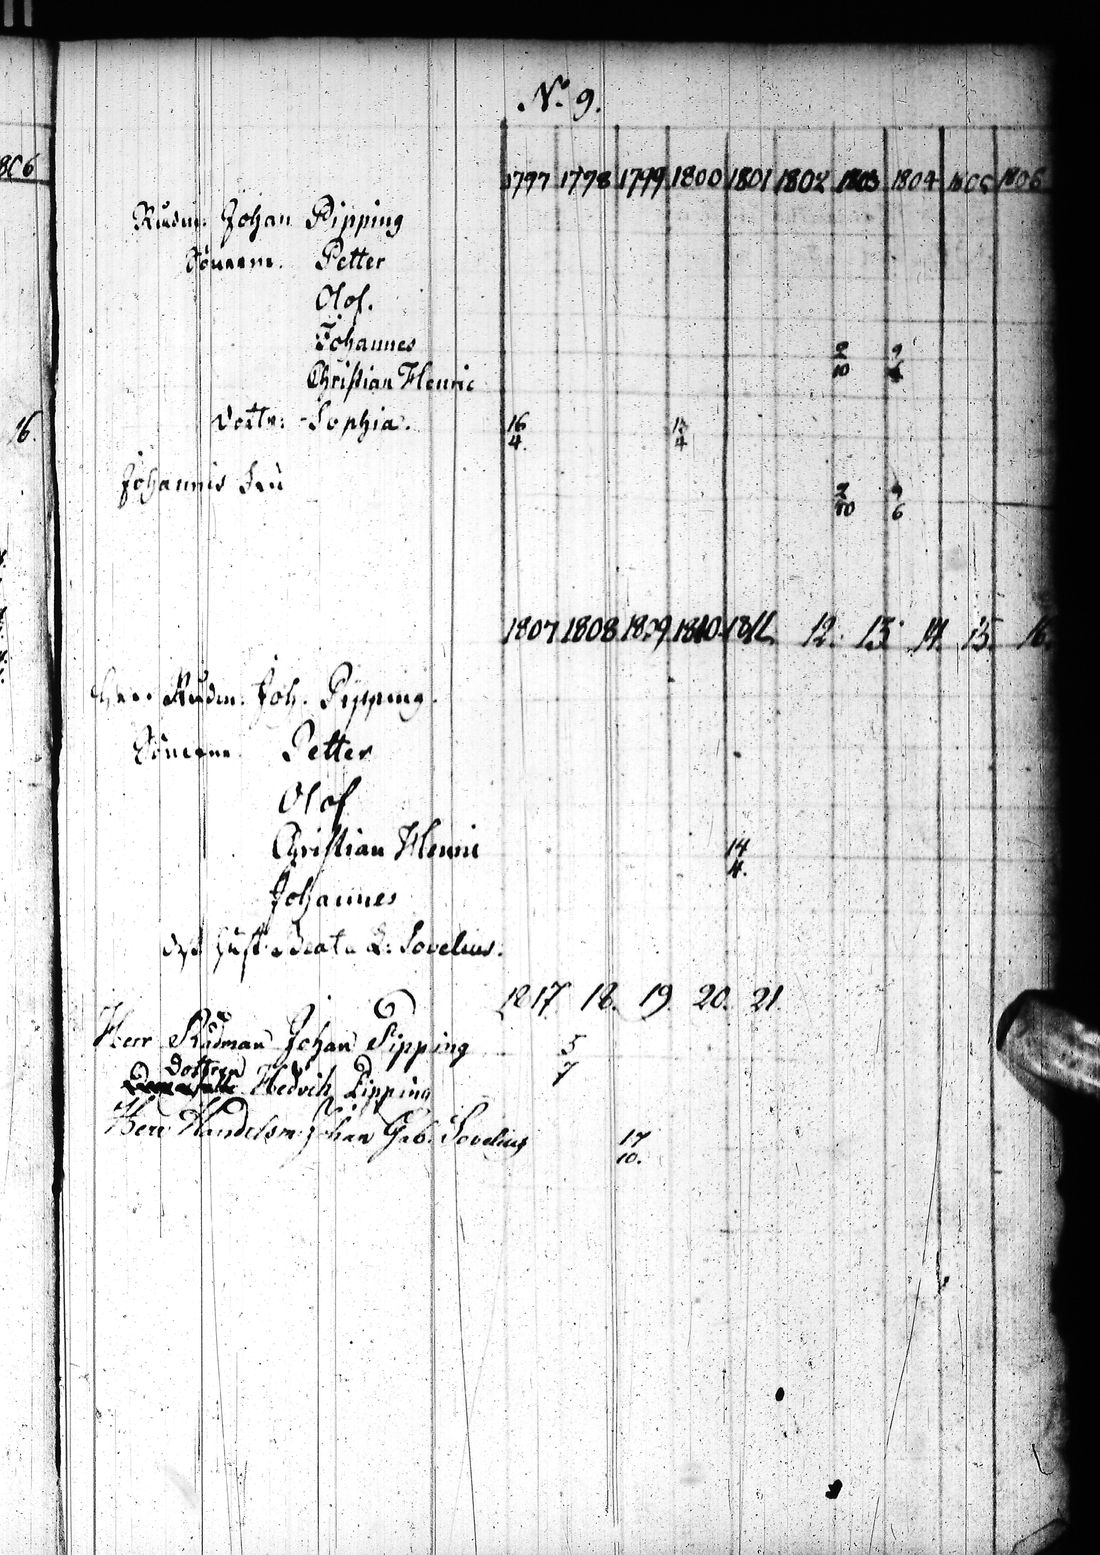 1806
16.
No 9.
1797 1798 1799 1800 1801 1802 1803 1804 1805 1806
Rådm. Johan Pipping
Sönerne. Petter
Olof.
Johannes 2/10 9/6
Christian Henric
Dottr: Sophia. 16/4. 13/4
Johannis Fru 2/10 9/6
1807 1808 1809 1810 1811. 12. 13 14. 15. 16.
Herr Rådm. Joh. Pipping.
Sönerne Petter
Olof
Christian Henric 14/4.
Johannes
Dess Hust. Beata L. Sovelius.
1817 18. 19. 20. 21.
Herr Rådman Johan Pipping 5/7
Dottren Hedvik Pipping
Herr Handelsm. Johan Gab. Sovelius 17/10.